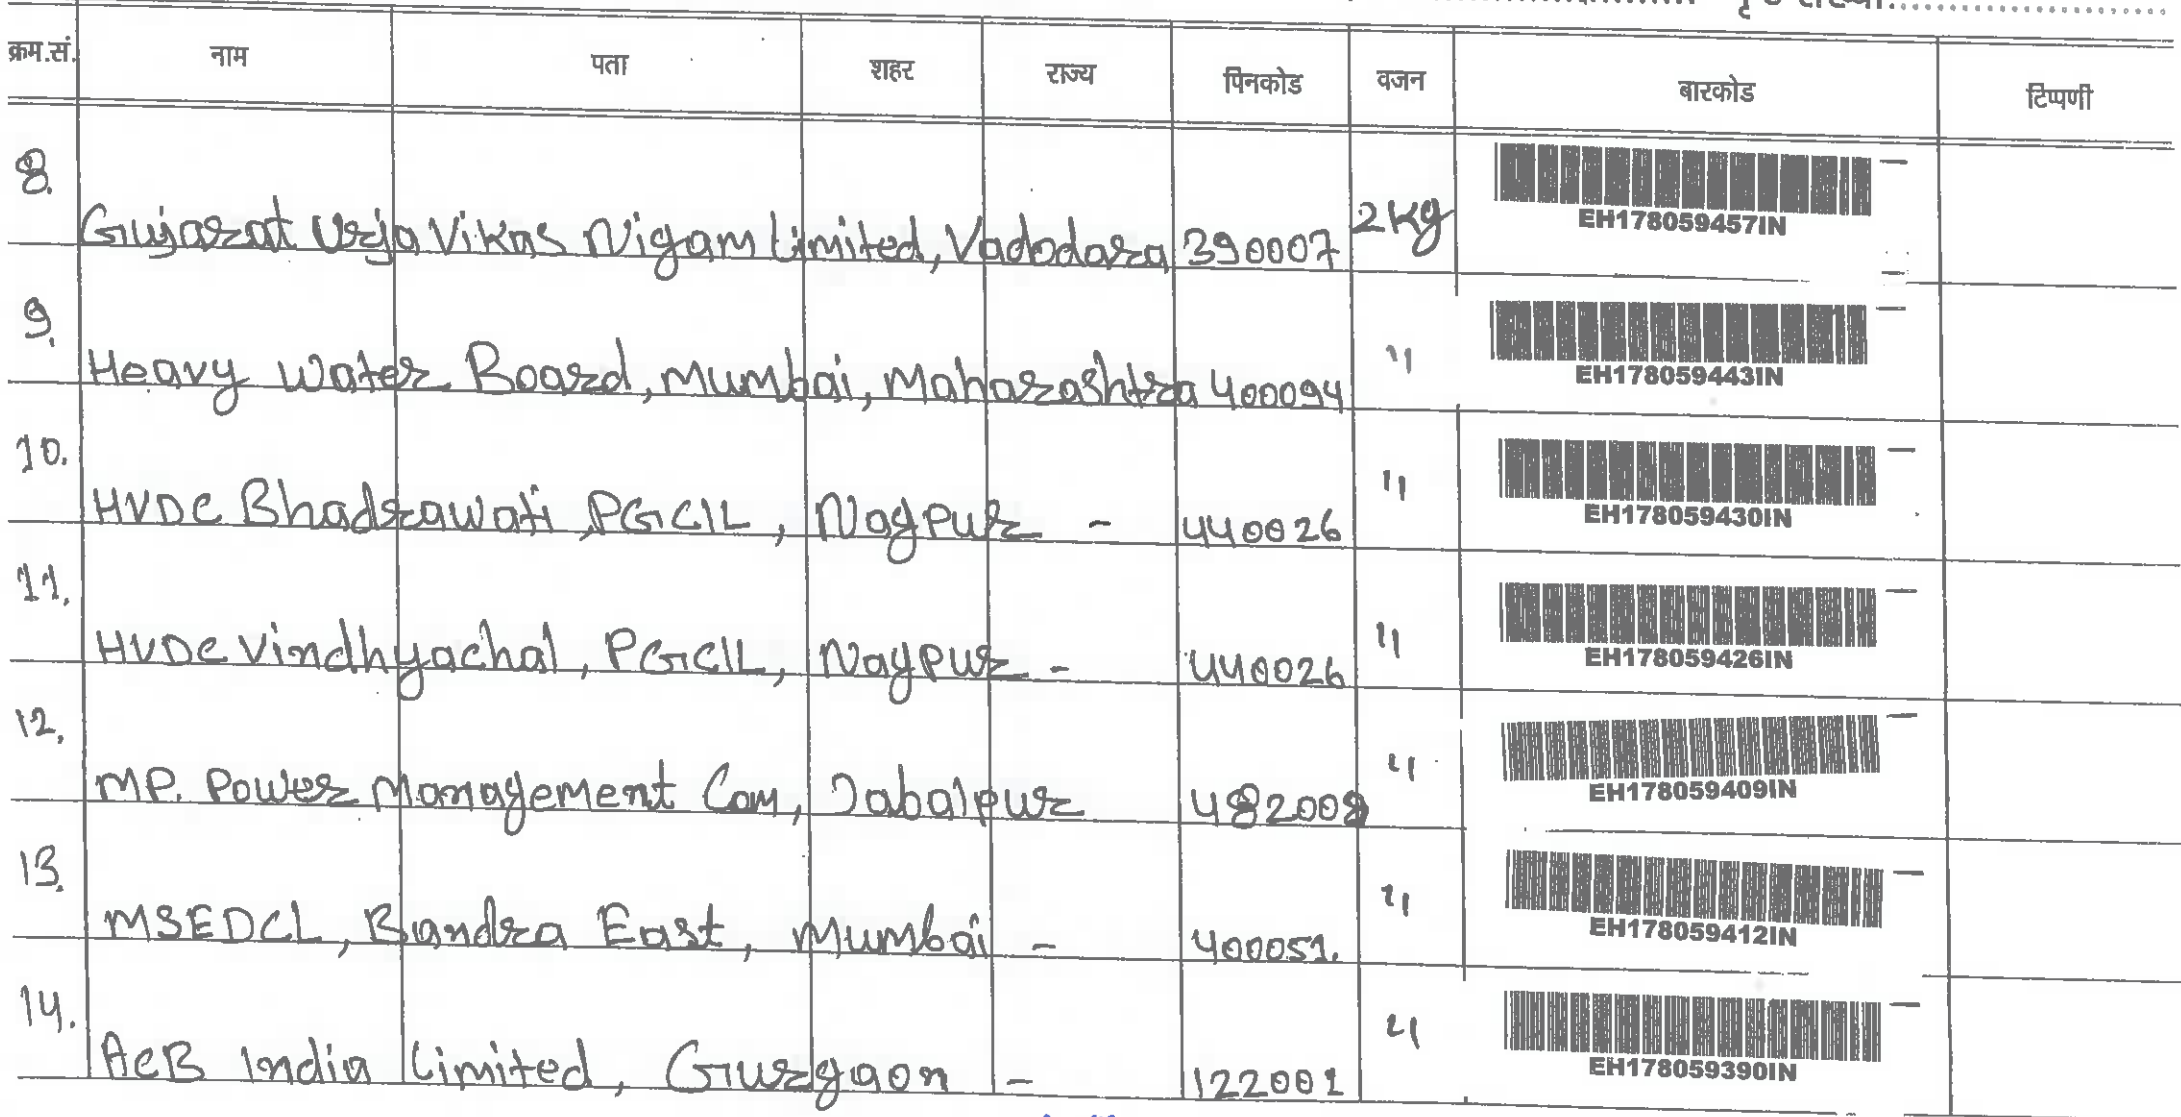 पृष्ठ संख्या
क्रम.सं. नाम पता शहर राज्य पिनकोड वजन बारकोड टिप्पणी
8. Gujarat Urja Vikas Nigam Limited, Vadodara 390007 2kg EH178059457IN
9. Heavy Water Board, Mumbai, Maharashtra 400094 " EH178059443IN
10. HVDC Bhadrawati, PGCIL, Nagpur - 440026 " EH178059430IN
11. HVDC Vindhyachal, PGCIL, Nagpur - 440026 " EH178059426IN
12. MP. Power Management Com, Jabalpur 482008 " EH178059409IN
13. MSEDCL, Bandra East, Mumbai - 400051. " EH178059412IN
14. ACB India Limited, Gurgaon - 122001 " EH178059390IN